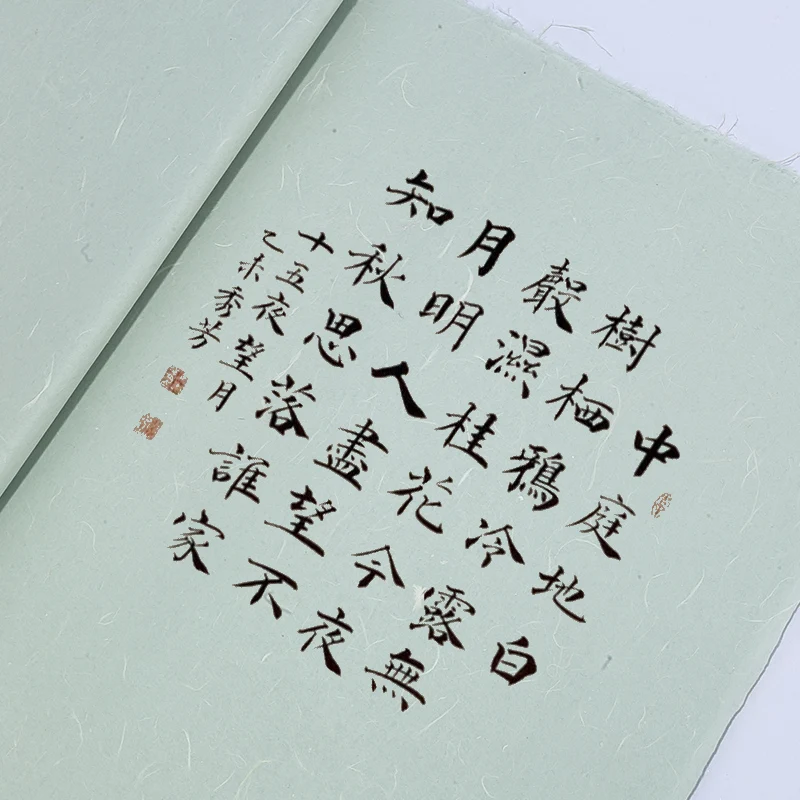 中庭地白
樹栖鴉冷露無
聲濕桂花今夜
月明人盡望不
知秋思落誰家
十五夜望月
乙未秀芳